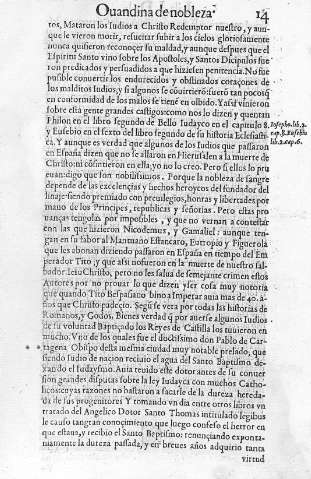 Ouandina de nobleza. 14
ros, Mataron los Iudios a Christo Redemptor nuestro, y aun-
que le vieron morir, resucitar subir a los cielos gloriosamente
nunca quisieron reconoçer su maldad, y aunque despues que el
Espiritu Santo vino sobre los Apostoles, y Santos Dicipulos fue
ron predicados y persuadidos a que hiziesen penitencia. No fue
pusible convertir los endurecidos y obstinados coraçones de
los malditos Iudios, y si algunos se cōuirtierō fuerō tan pocos q̄
en conformidad de los malos se tiene en olbido. Y asi vinieron
sobre esta gente grandes castigos como nos lo dizen y quentan
Philon en el libro segundo de Bello Iudayco en el capitulo 8.
y Eusebio en el sexto del libro segundo de su historia Eclesiasti
ca. Y aunque es verdad que algunos de los Iudios que passaron
en España dizen que no se allaron en Hierusalen a la muerte de
Christo ni cōsintieron en ella yo no lo creo. Pero si ellos lo pru
euan digo que son nobilisimos. Porque la nobleza de sangre
depende de las excelençias y hechos heroycos del fundador del
linaje siendo premiado con preuilegios, honras y libertades por
mano de los Principes, republicas y señorias. Pero estas pro
uanças tengolas por imposibles, y que no vernan a contestar
con las que hizieron Nicodemus, y Gamaliel: aunque ten-
gan en su fabor al Mantuano Estancaro, Eutropio y Figuerola
que les abonan diziendo passaron en España en tiempo del Em
perador Tito, y que asi no fueron en la muerte de nuestro sal-
bador Iesu Christo, pero no les salua de semejante crimen estos
Autores por no prouar lo que dizen y ser cosa muy notoria
que quando Tito Bespasiano bino a Imperar auia mas de 40. a-
ños que Christo padeçio. Segū se vera por todas las historias de
Romanos, y Godos. Bienes verdad q̄ por auerse algunos Iudios
de su voluntad Baptiçado los Reyes de Castilla los tuuieron en
mucho. Vno de los quales fue el doctissimo don Pablo de Car-
tagena Obispo della mesma ciudad muy notable prelado, que
siendo Iudio de nacion reciuio el agua del Santo Baptismo de-
xando el Iudaysmo. Auia tenido este dotor antes de su conuer
sion grandes disputas sobre la ley Iudayca con muchos Catho-
licos: cuyas razones no bastaron a sacarle de la dureza hereda-
da de sus progenitores Y tomando vn dia entre otros libros vn
tratado del Angelico Dotor Santo Thomas intitulado legibus
le causo tangran conocimiento que luego confeso el herror en
que estaua, y recibio el Santo Baptismo: renunçiando exponta-
niamente la dureza passada, y en breues años adquirio tanta
virtud